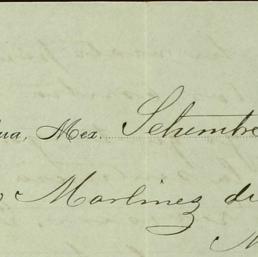 ua, Mex. Setembre
Martinez de